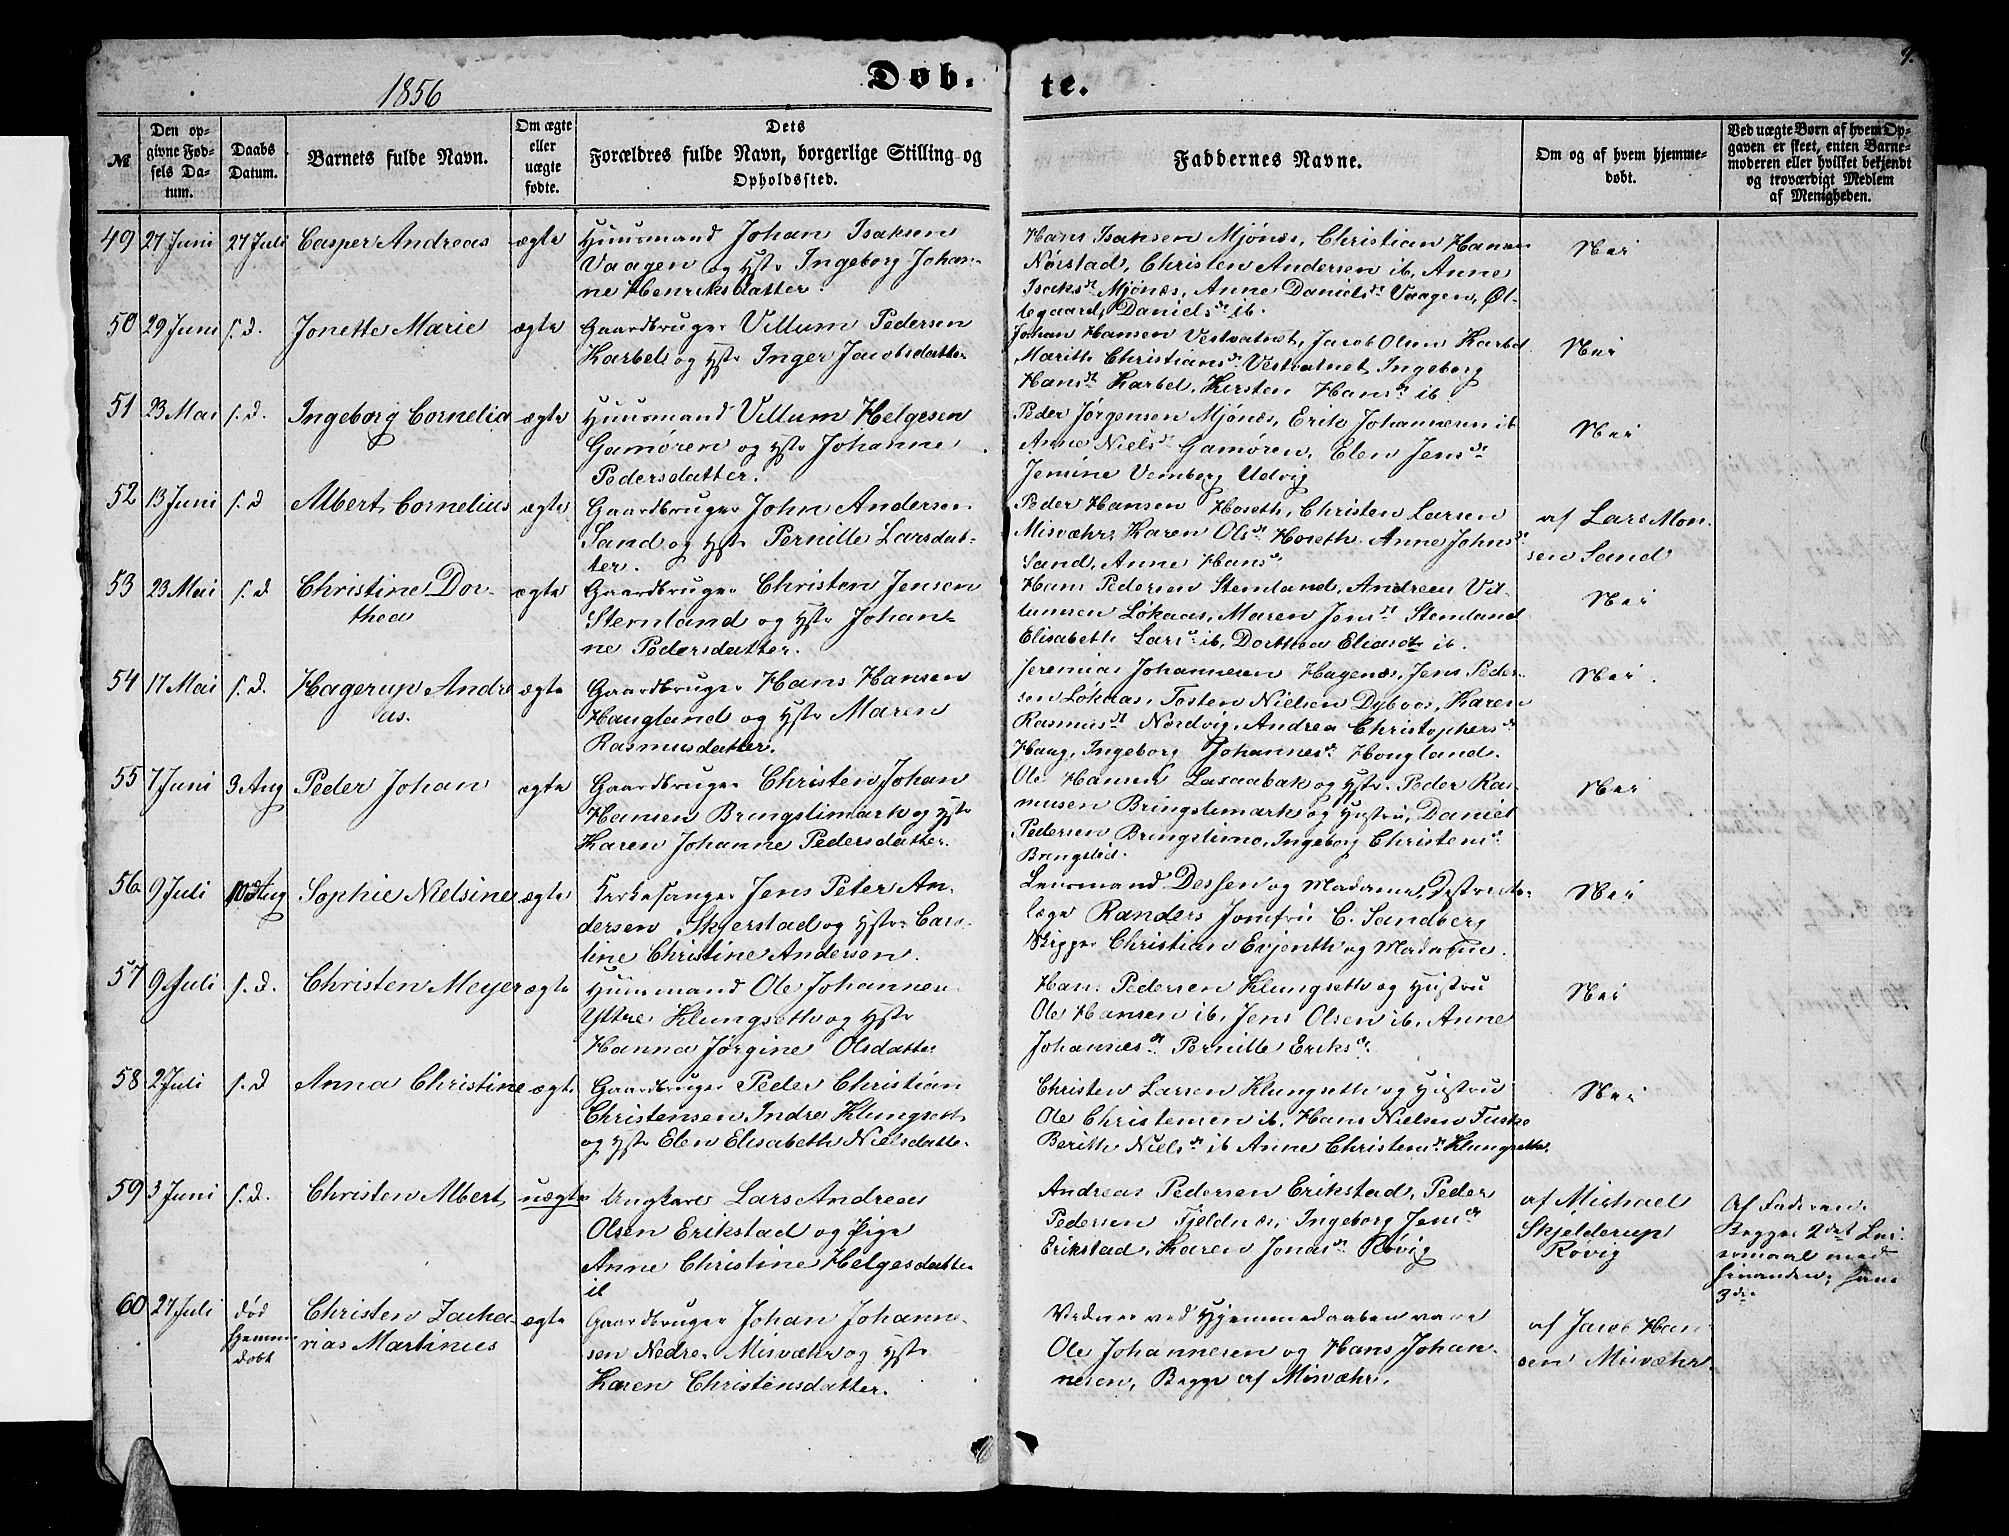 1856
Døb-
te.
9.
№
Den op-
givne Fød-
sels Da-
tum.
Daabs
Datum.
Barnets fulde Navn.
Om ægte
eller
uægte
fødte.
Dets
Forældres fulde Navn, borgerlige Stilling og
Opholdssted.
Faddernes Navne.
Om og af hvem hjemme-
døbt.
Ved uægte Børn af hvem Op-
gaven er skeet, enten Barne-
moderen eller hvilket bekjendt
og troværdigt Medlem
af Menigheden.
49 27 Juni 27 Juli Casper Andreas ægte Huusmand Johan Isaksen
Vaagen og Hstr Ingeborg Johan-
ne Henriksdatter.
Hans Isaksen Mjönes, Christian Hansen
Nörstad, Christen Andersen ib, Anne
Isaksdr Mjönes, Anne Danielsdr Vaagen, Øl-
legaard Danielsdr ib.
Nei
50 29 Juni s. d. Jonette Marie ægte Gaardbruger Villum Pedersen
Karbel og Hstr Inger Jacobsdatter
Johan Hansen Vestvatnet, Jacob Olsen Karbel
Marith Christiansdr Vestvatnet, Ingeborg
Hansdr Karbel, Kirsten Hansdr ib.
Nei
51 23 Mai s. d. Ingeborg Cornelia ægte Huusmand Villum Helgesen
Gamören og Hstr Johanne
Pedersdatter.
Peder Jörgensen Mjönes, Erik Johannesen ib
Anne Nielsdr Gamören, Elen Jensdr
Jemine Vemberg Udvig
Nei
52 13 Juni s. d Albert Cornelius ægte Gaardbruger John Andersen
Sand og Hstr Pernille Larsdat-
ter.
Peder Hansen Hoseth, Christen Larsen
Misvæhr, Karen Olsdr Hoseth, Anne Johnsdr
Sand, Anne Hansdr
af Lars Mon-
sen Sand
53 23 Mai s. d Christine Dor-
thea ægte Gaardbruger Christen Jensen
Stemland og Hstr Johan-
ne Pedersdatter.
Hans Pedersen Stemland, Andreas Vil-
lumsen Lökaas, Maren Jensdr Stemland
Elisabeth Larsdr ib, Dorthea Eliasdtr ib.
Nei
54 17 Mai s. d. Hagerup Andre
as. ægte Gaardbruger Hans Hansen
Haugland og Hstr Maren
Rasmusdatter.
Jeremias Johannesen Hagenæs, Jens Peder-
sen Lökaas, Tosten Nielsen Dybvos, Karen
Rasmusdr Nordvig, Andrea Christophersdr
Haug, Ingeborg Johannesdr Hougland.
Nei.
55 7 Juni 3 Aug Peder Johan ægte Gaardbruger Christen Johan
Hansen Bringslimark og Hstr
Karen Johanne Pedersdatter.
Ole Hansen Laxaabak og Hstr. Peder Ras-
musen Bringslimark og Hustru, Daniel
Pedersen Bringslimo, Ingeborg Christensdr
Brengslid.
Nei
56 9 Juli 10 Aug Sophie Nielsine ægte Kirkesanger Jens Peter An-
dersen Skjerstad og Hstr Caro-
line Christine Andersen.
Lensmand Dessen og Madame, Destrikts-
læge Randers Jomfru C. Sandberg
Skipper Christian Evjenth og Madame.
Nei
57 9 Juli s. d. Christen Meyer ægte Huusmand Ole Johannesen
Yttre Klungseth og Hstr
Hanna Jörgine Olsdatter
Hans Pedersen Klungseth og Hustru
Ole Hansen ib, Jens Olsen ib, Anne
Johannesdr Pernille Eriksdr.
Nei
58 2 Juli s. d Anna Christine ægte Gaardbruger Peder Christian
Christensen Indre Klungseth
og Hstr Elen Elisabeth Nielsdatter
Christen Larsen Klungseth og Hustru
Ole Christensen ib, Hans Nielsen Fuske
Berith Nielsdr ib Anne Christensdr Klungseth.
Nei
59 3 Juni s. d. Christen Albert, uægte Ungkarl Lars Andreas
Olsen Erikstad og Pige
Anne Christine Helgesdatter
ib
Andreas Pedersen Erikstad, Peder
Pedersen Fjeldnæs, Ingeborg Jensdr
Erikstad, Karen Jonasdr Rövig
af Michael
Skjelderup
Rövig
Af Faderen.
Begges 2det Lei-
ermaal med
hinanden, hans
3die
60 27 Juli död
hjemme
döbt Christen Zacha-
rias Martinus ægte Gaardbruger Johan Johanne-
sen Nedre Misvæhr og Hstr
Karen Christensdatter.
Vidner ved Hjemmedaaben vare
Ole Johannesen og Hans Johan-
nesen, Begge af Misvæhr.
af Jacob Han
sen Misvæhr